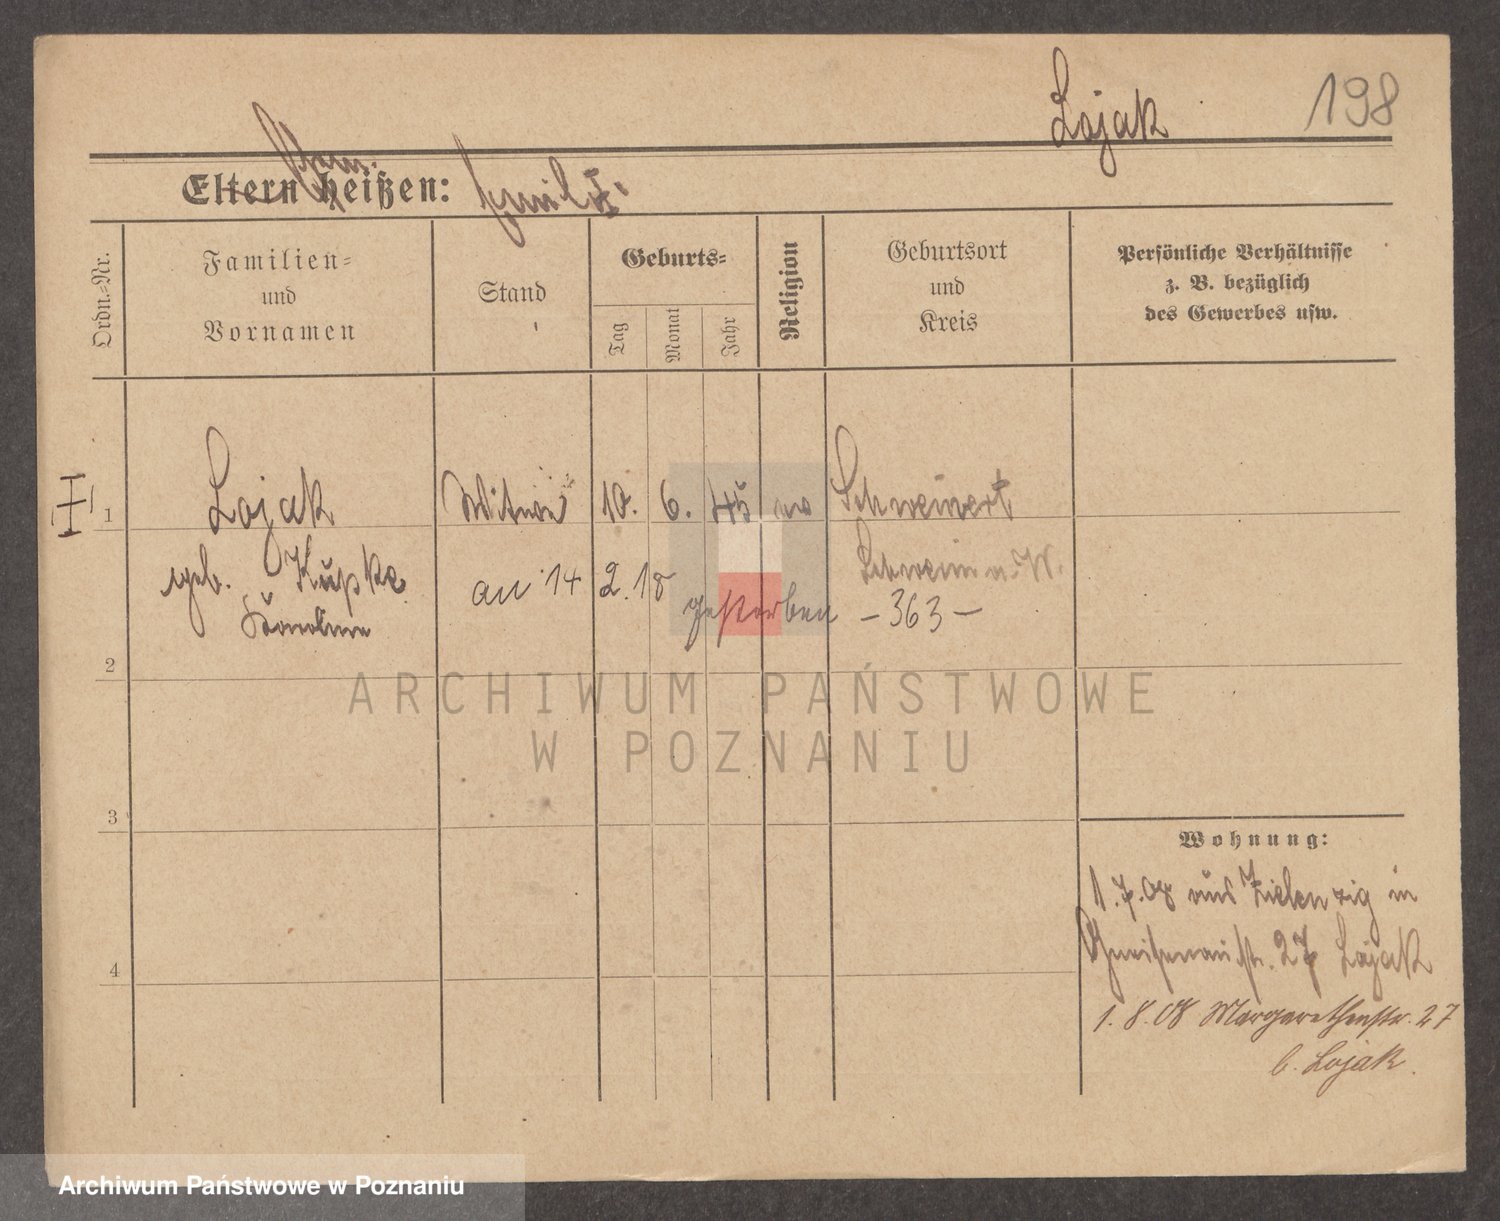 Lojak
198
Eltern heißen:
Emil I.
Ordn.-Nr.
Familien-
und
Vornamen
Stand
Geburts-
Tag
Monat
Jahr
Religion
Geburtsort
und
Kreis
Persönliche Verhältnisse
z. B. bezüglich
des Gewerbes usw.
1
Lojak
Witwe
10. 6. 45
Schweinert
geb. Kupke
an 14 2. 18
gestorben
Schwerin a. W.
- 363 -
2
3
4
ARCHIWUM PAŃSTWOWE
W POZNANIU
Wohnung:
1. 7. 08 aus Zielenzig in
Gneisenaustr. 27 Lojak
1. 8. 08 Margarethenstr. 27
b. Lojak.
Archiwum Państwowe w Poznaniu